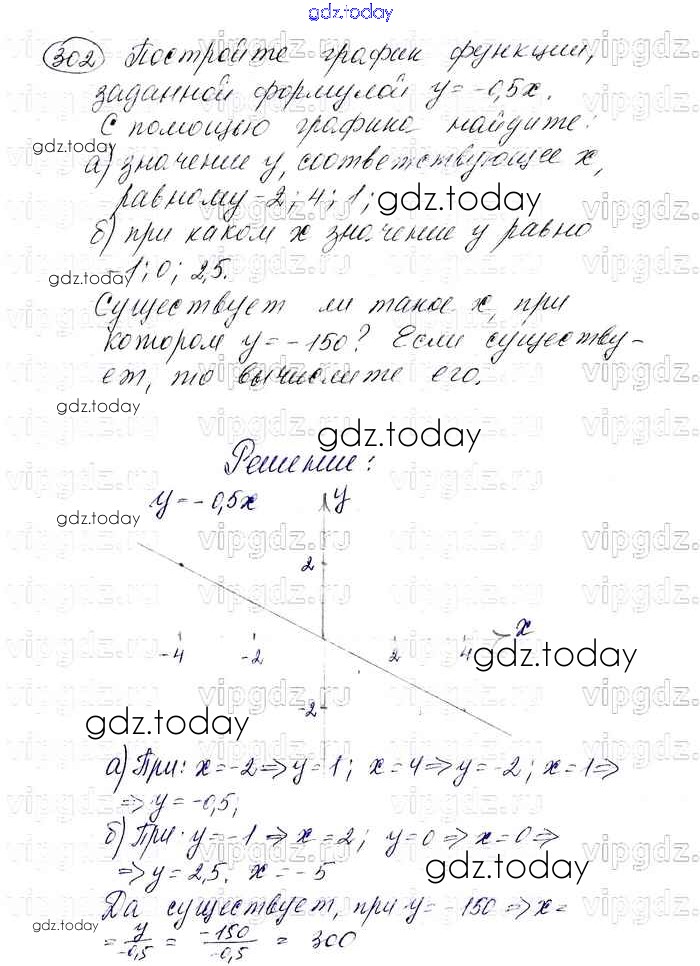 gdz.today
302 Постройте график функции,
заданной формулой y = -0,5x.
С помощью графика найдите:
gdz.today
а) значение y, соответствующее x,
равному -2; 4; 1;
gdz.today
б) при каком x значение y равно
-1; 0; 2,5.
gdz.today
Существует ли такое x, при
котором y = -150? Если существу-
ет, то вычислите его.
gdz.today
gdz.today
Решение:
y = -0,5x
y
gdz.today
2
x
-4 -2 2 4
gdz.today
-2
gdz.today
а) При: x = -2 => y = 1; x = 4 => y = -2; x = 1 =>
=> y = -0,5;
б) При y = -1 => x = 2; y = 0 => x = 0 =>
=> y = 2,5. x = -5
gdz.today
Да существует, при y = -150 => x =
= y/-0,5 = -150/-0,5 = 300
gdz.today
vipgdz.ru